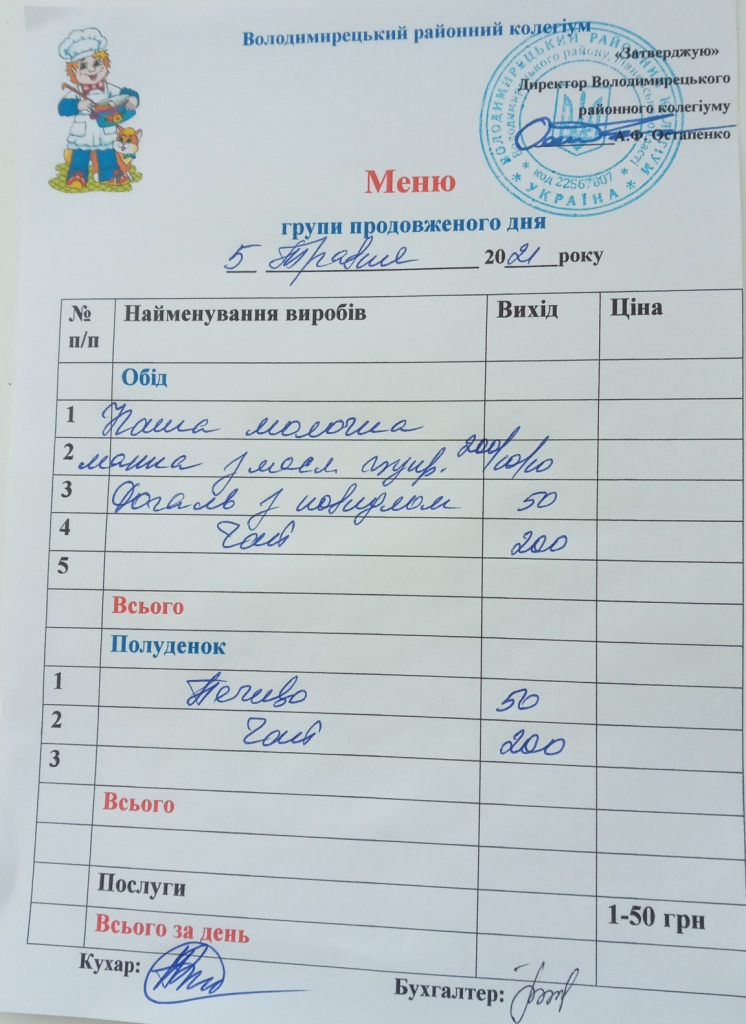 Володимирецький районний колегіум
«Затверджую»
Директор Володимирецького
районного колегіуму
А.Ф. Остапенко
ВОЛОДИМИРЕЦЬКИЙ РАЙОННИЙ КОЛЕГІУМ
код 22567807
УКРАЇНА
Меню
групи продовженого дня
5 Травня 2021 року
№ п/п Найменування виробів Вихід Ціна
Обід
1 Каша молочна
2 манна з масл. цукр. 200/10/10
3 Рогаль з повидлом 50
4 Чай 200
5
Всього
Полуденок
1 Печиво 50
2 Чай 200
3
Всього
Послуги 1-50 грн
Всього за день
Кухар:
Бухгалтер: